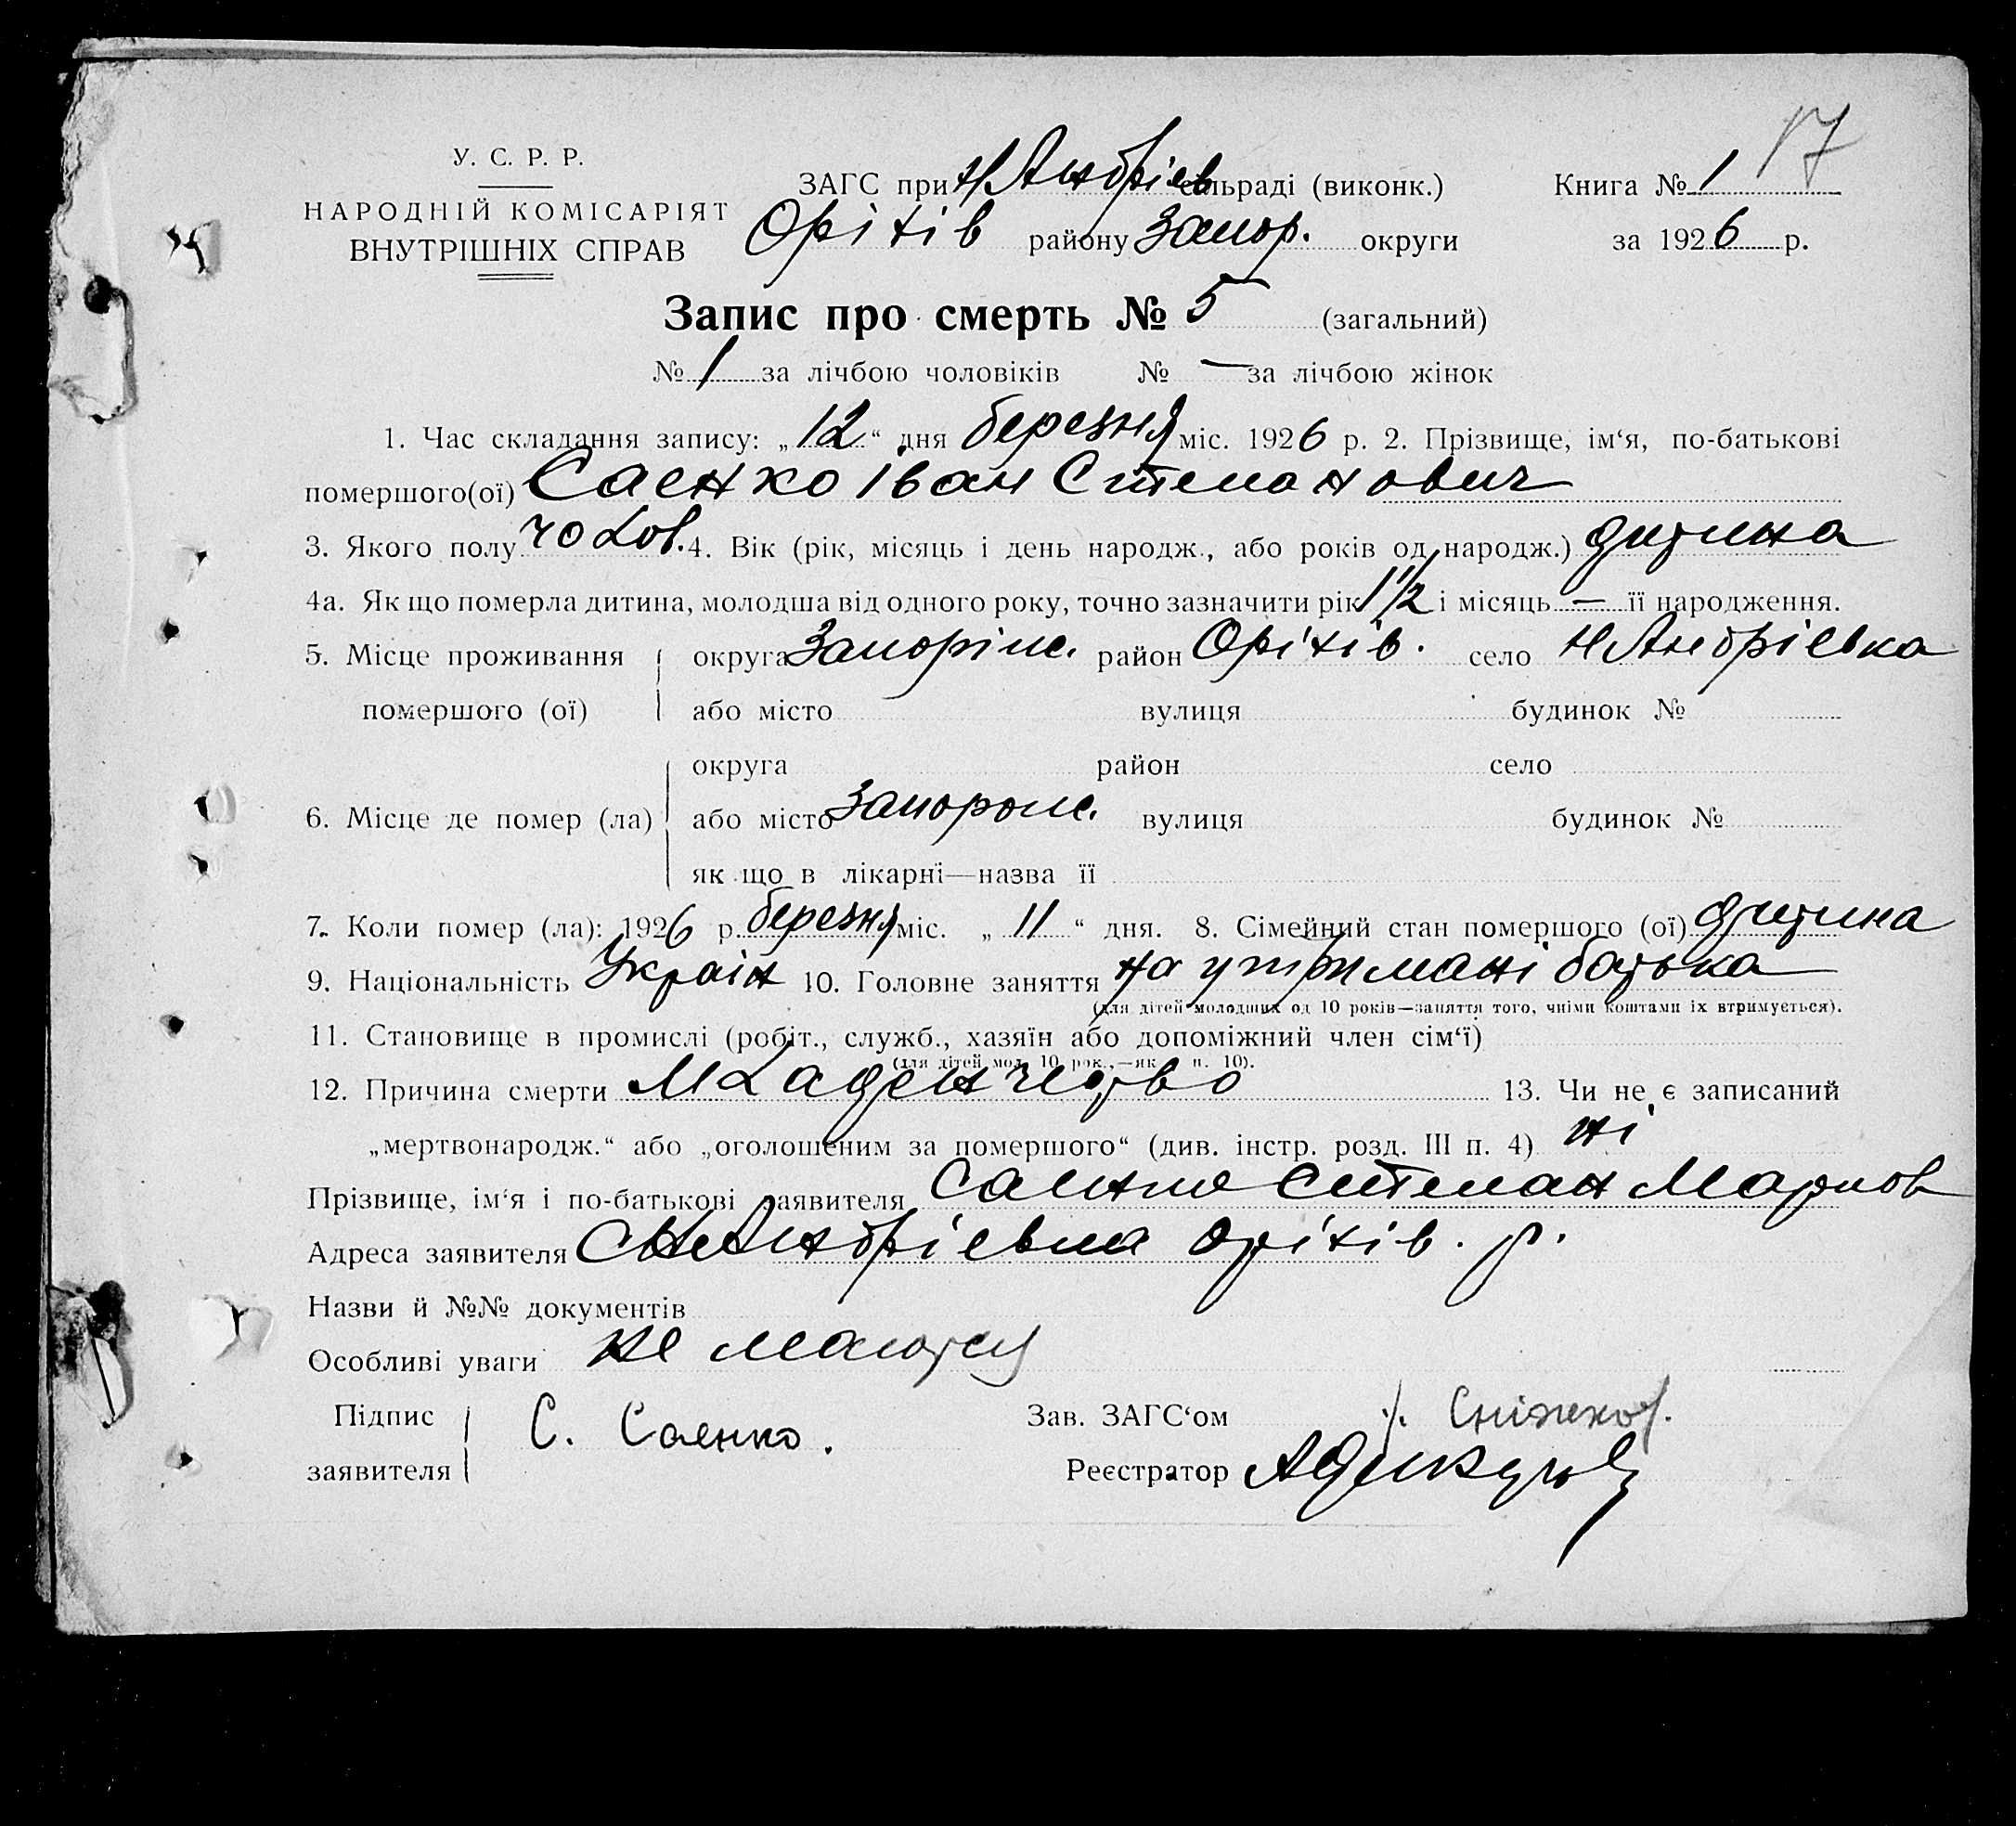 17
У. С. Р. Р.
НАРОДНІЙ КОМІСАРІЯТ
ВНУТРІШНІХ СПРАВ
ЗАГС при Н Андріев сільраді (виконк.)
Оріхів району Запор. округи
Книга № 1
за 1926 р.
Запис про смерть № 5 (загальний)
№ 1 за лічбою чоловіків № — за лічбою жінок
1. Час складання запису: „12“ дня березня міс. 1926 р. 2. Прізвище, ім‘я, по-батькові
помершого(ої) Саенко Іван Степанович
3. Якого полу чолов. 4. Вік (рік, місяць і день народж., або років од народж.) дитина
4а. Як що померла дитина, молодша від одного року, точно зазначити рік 1 1/2 і місяць — її народження.
5. Місце проживання помершого (ої) округа Запоріж. район Оріхів. село Н Андріевка
або місто вулиця будинок №
6. Місце де помер (ла) округа район село
або місто Запорож. вулиця будинок №
як що в лікарні—назва її
7. Коли помер (ла): 1926 р. березня міс. „11“ дня. 8. Сімейний стан помершого (ої) дитина
9. Національність Украін 10. Головне заняття на утримані батька
(для дітей молодших од 10 років—заняття того, чиїми коштами їх втримується).
11. Становище в промислі (робіт., служб., хазяїн або допоміжний член сім‘ї)
(для дітей мол. 10 рок.,—як п. 10).
12. Причина смерти Младенчество 13. Чи не є записаний
„мертвонародж.“ або „оголошеним за помершого“ (див. інстр. розд. III п. 4) ні
Прізвище, ім‘я і по-батькові заявителя Саенко Степан Марков
Адреса заявителя Андріевка Оріхів. р.
Назви й №№ документів
Особливі уваги не маютея
Підпис заявителя С. Саенко.
Зав. ЗАГС‘ом
Реєстратор